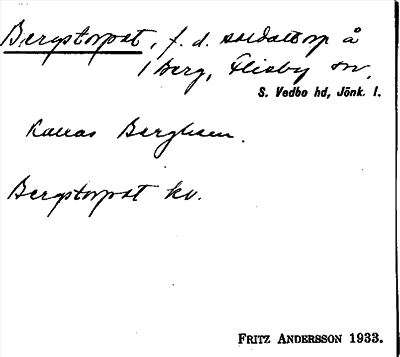 Bergstorpet, f. d. soldattorp å
1 Berg, Flisby sn,
S. Vedbo hd, Jönk. l.
Kallas Berghem.
Bergstorpet kv.
FRITZ ANDERSSON 1933.